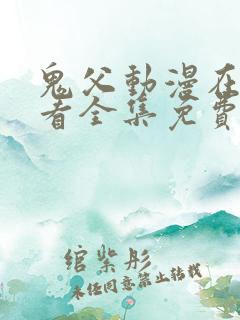 鬼父動漫在
看全集免費
綰紫彤
未经同意禁止转载